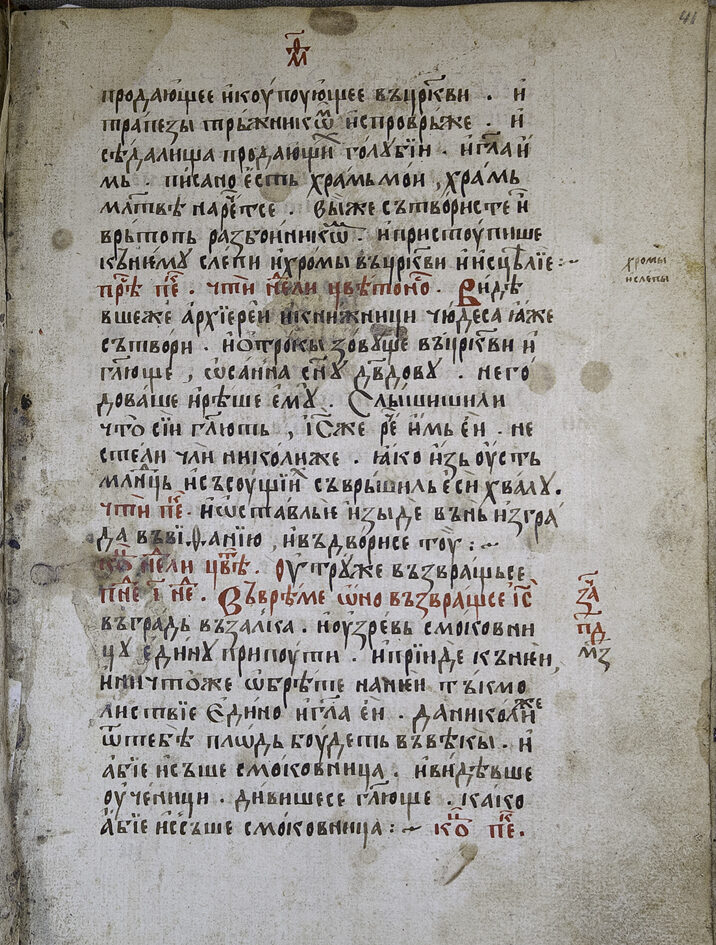 м҃а
41
продаю́щее и҆коу́поую́щее въцр҃кви . и҆
трапезы трьжникѡ̑м и҆спроврьже . и҆
сѣдалища продаю́щиⷯ голѹбїи . и҆гл҃а и҆
мь . писано е҆сть храмьмои , храмь
мл҃твѣ наречетсе . вы́же сътвористе и҆
врьтопь разбоиникѡм . и҆пристоупише
кънемѹ слепи и҆хромы въцр҃кви и҆и҆сцѣлїе :~
хромы
и҆слепы
прѣ пⷣе . чти нⷣели цвѣтоно . Видѣ
вшеже а҆рхїереи и҆книжници чюдеса ꙗ҆же
сътвори . и҆ѡ҆трокы зовѹще въцр҃кви и҆
гл҃юще , ѡ҆санна сн҃ѹ дв҃дову . него
доваше и҆реше е҆мѹ . Слышишили
что сїи гл҃ють , і҆с҃же рⷱе и҆мь е҆и . не
стели чли николиже . ꙗ҆ко и҆зь оу҆сть
млⷣнць и҆съсоущиⷯ съврьшиль е҆си хвалѹ .
чти пⷣе . и҆ѡ҆ставлье и҆зыде вънь и҆згра
да въвиѳанїю , и҆въдворисе тоу :~
коⷩ нⷣели цвⷮѣ . Оу҆трѹже възвращьсе
пнⷣе г҃ нⷣе . Въврѣме ѡ҆но възвращсе і҆с҃
за
пд
мз
въградь възалка . и҆оу҆зревь смоковни
цѹ е҆динѹ припоути . и҆прїиде къниеи ,
и҆ничтоже ѡ҆брѣте наниеи тъкмо
листвїе е҆дино и҆гл҃а е҆и . даниколиже
ѿтебѣ плѡдь боудеть въвѣкы . и҆
а҆бїе и҆съше смоковница . и҆видѣвше
оу҆ченици . дивишесе гл҃юще . како
а҆бїе и҆съше смоковница :~ коⷩ пⷣе .